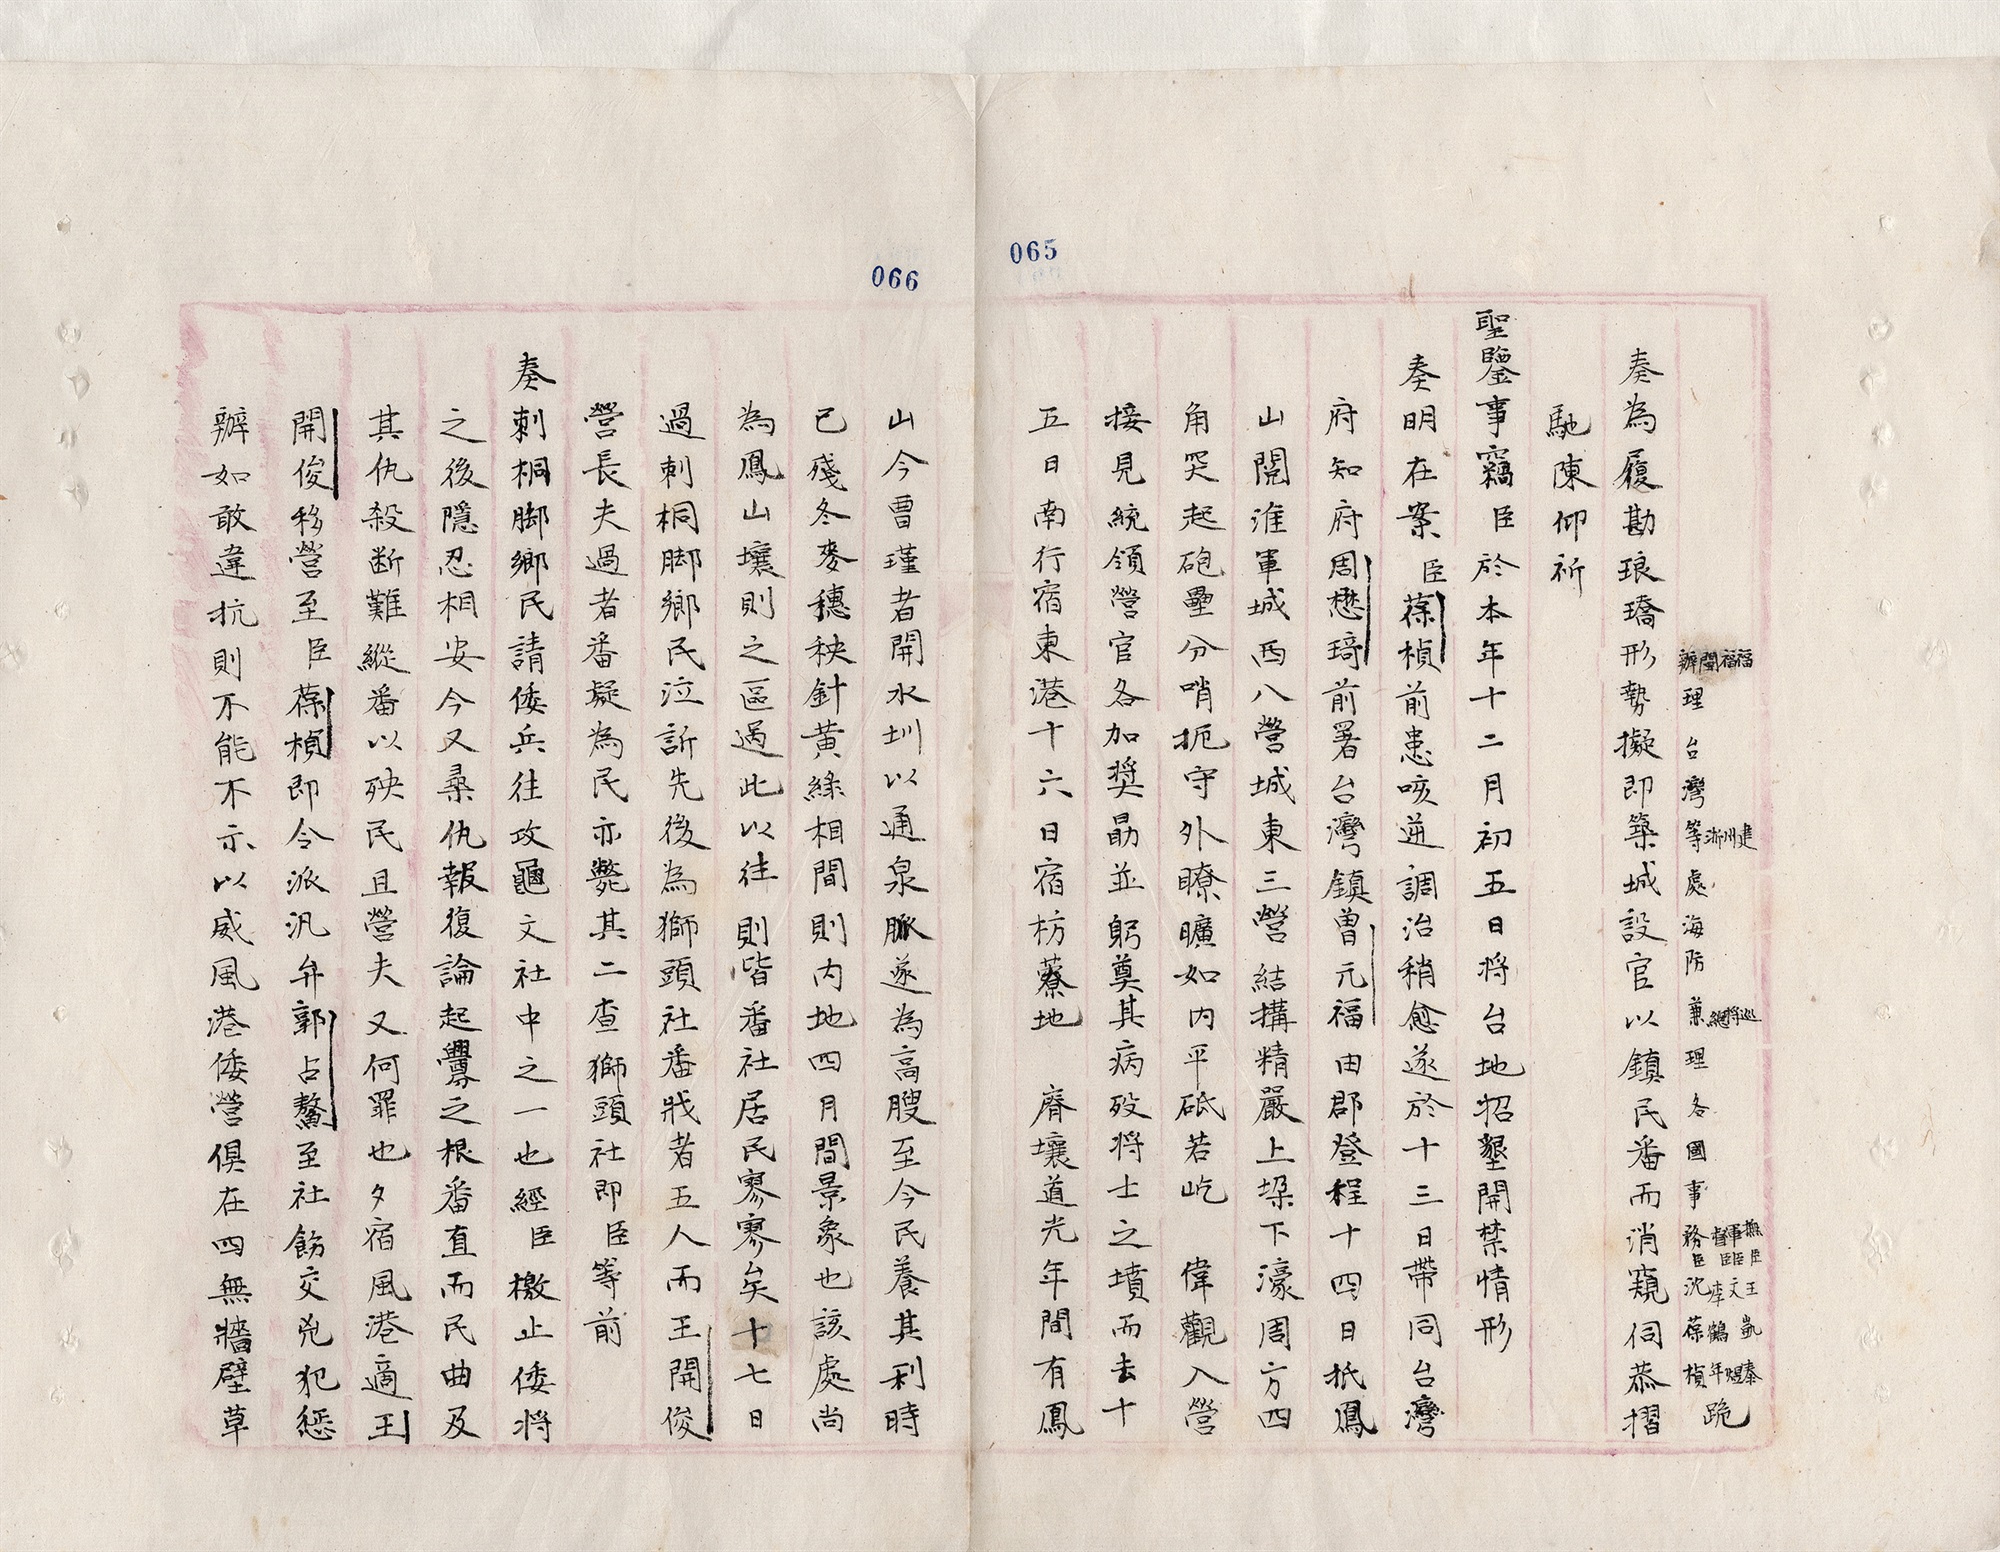 065
辦理台灣等處海防兼理各國事務臣沈葆楨
福州將軍臣文煜
閩浙總督臣李鶴年
福建巡撫臣王凱泰跪
奏為履勘琅𤩝形勢擬即築城設官以鎮民番而消窺伺恭摺
馳陳仰祈
聖鑒事竊臣於本年十二月初五日將台地招墾開禁情形
奏明在案臣葆楨前患咳逆調治稍愈遂於十三日帶同台灣
府知府周懋琦前署台灣鎮曾元福由郡登程十四日抵鳳
山閱淮軍城西八營城東三營結構精嚴上垛下濠周方四
角突起砲壘分哨扼守外瞭曠如內平砥若屹偉觀入營
接見統領營官各加獎勗並躬奠其病歿將士之墳而去十
五日南行宿東港十六日宿枋藔地脊壤道光年間有鳳
066
山今曹瑾者開水圳以通泉脈遂為高腴至今民養其利時
已殘冬麥穗秧針黃綠相間則內地四月間景象也該處尚
為鳳山壤則之區過此以往則皆番社居民寥寥矣十七日
過刺桐脚鄉民泣訴先後為獅頭社番戕者五人而王開俊
營長夫過者番疑為民亦斃其二查獅頭社即臣等前
奏刺桐脚鄉民請倭兵往攻龜文社中之一也經臣檄止倭將
之後隱忍相安今又尋仇報復論起釁之根番直而民曲及
其仇殺斷難縱番以殃民且營夫又何罪也夕宿風港適王
開俊移營至臣葆楨即令派汛弁郭占鰲至社飭交兇犯懲
辦如敢違抗則不能不示以威風港倭營俱在四無牆壁草